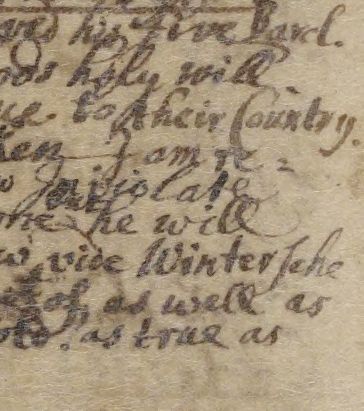 and his five Barcl.
ods holy will
ue to their Country.
ken I am re=
inviolate
one he will
w vide Winter he
as well as
old. as true as